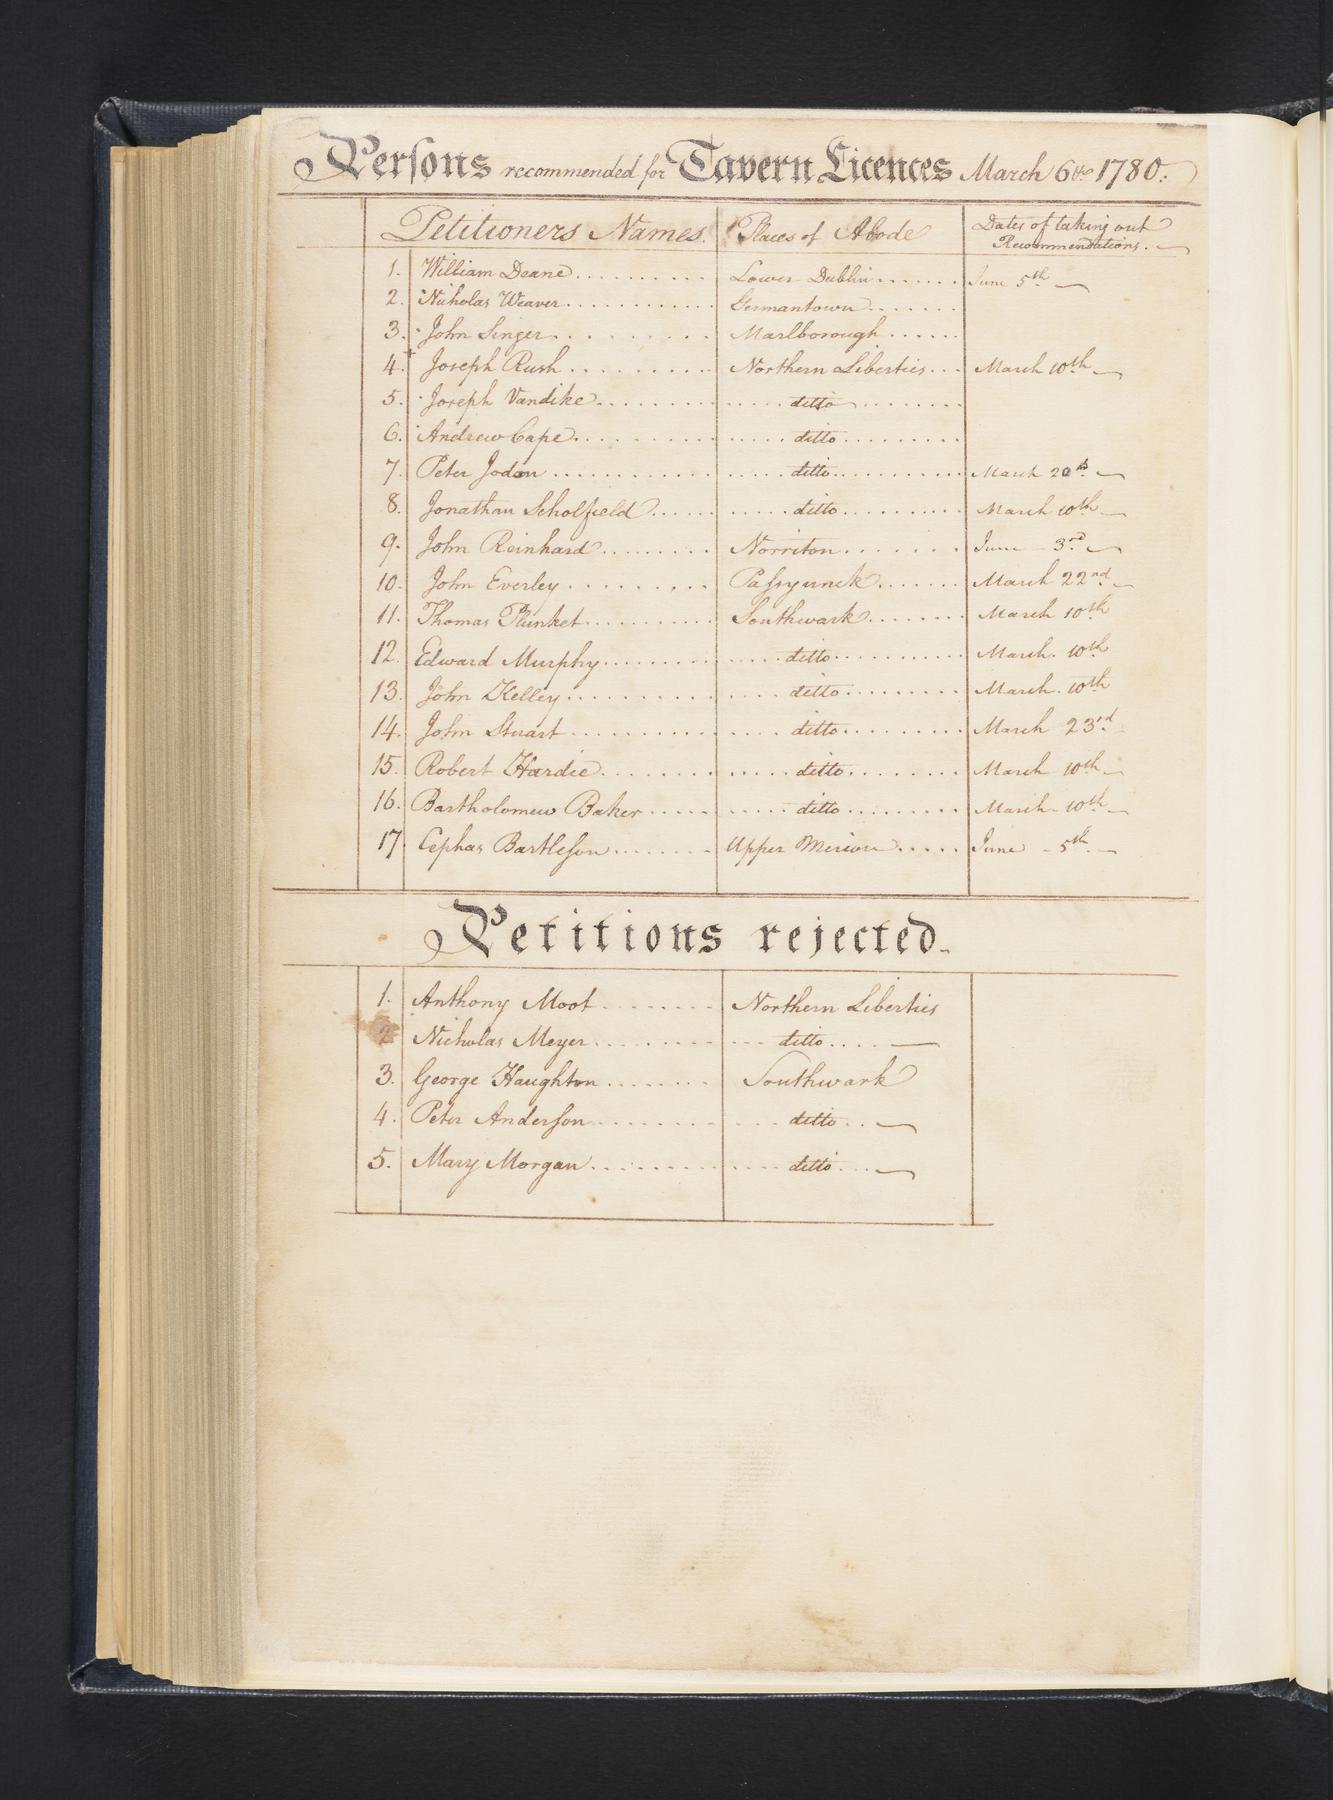 Persons recommended for Tavern Licences March 6th 1780.
Petitioners Names. Places of Abode Dates of taking out Recommendations.
1. William Deane Lower Dublin June 5th
2. Nicholas Weaver Germantown
3. John Singer Marlborough
4. Joseph Rush Northern Liberties March 10th
5. Joseph Vandike ditto
6. Andrew Cape ditto
7. Peter Jodon ditto March 20th
8. Jonathan Scholfield ditto March 10th
9. John Reinhard Norriton June 3rd
10. John Everley Passyunck March 22nd
11. Thomas Plunket Southwark March 10th
12. Edward Murphy ditto March 10th
13. John Kelley ditto March 10th
14. John Stuart ditto March 23rd
15. Robert Hardie ditto March 10th
16. Bartholomew Baker ditto March 10th
17. Cephas Bartleson Upper Merion June 5th
Petitions rejected.
1. Anthony Moot Northern Liberties
2. Nicholas Meyer ditto
3. George Haughton Southwark
4. Peter Anderson ditto
5. Mary Morgan ditto